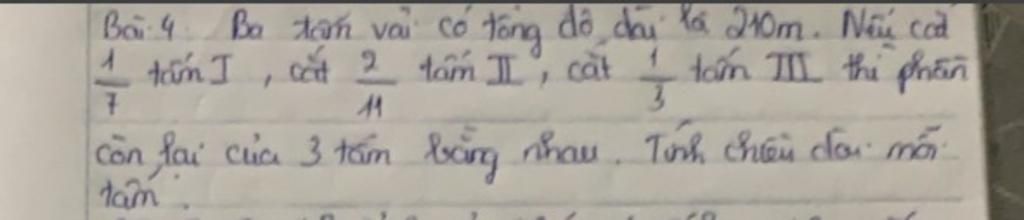 Bài 4 Ba tấm vải có tổng độ dài là 210m. Nếu cắt
1/7 tấm I, cắt 2/11 tấm II, cắt 1/3 tấm III thì phần
còn lại của 3 tấm bằng nhau. Tính chiều dài mỗi
tấm.